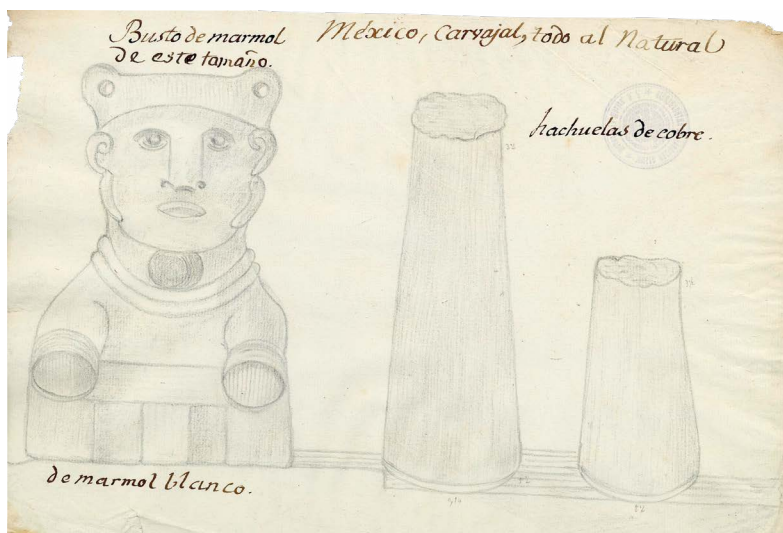 Busto de marmol
de este tamaño.
México, Carvajal, todo al Natural
hachuelas de cobre.
de marmol blanco.